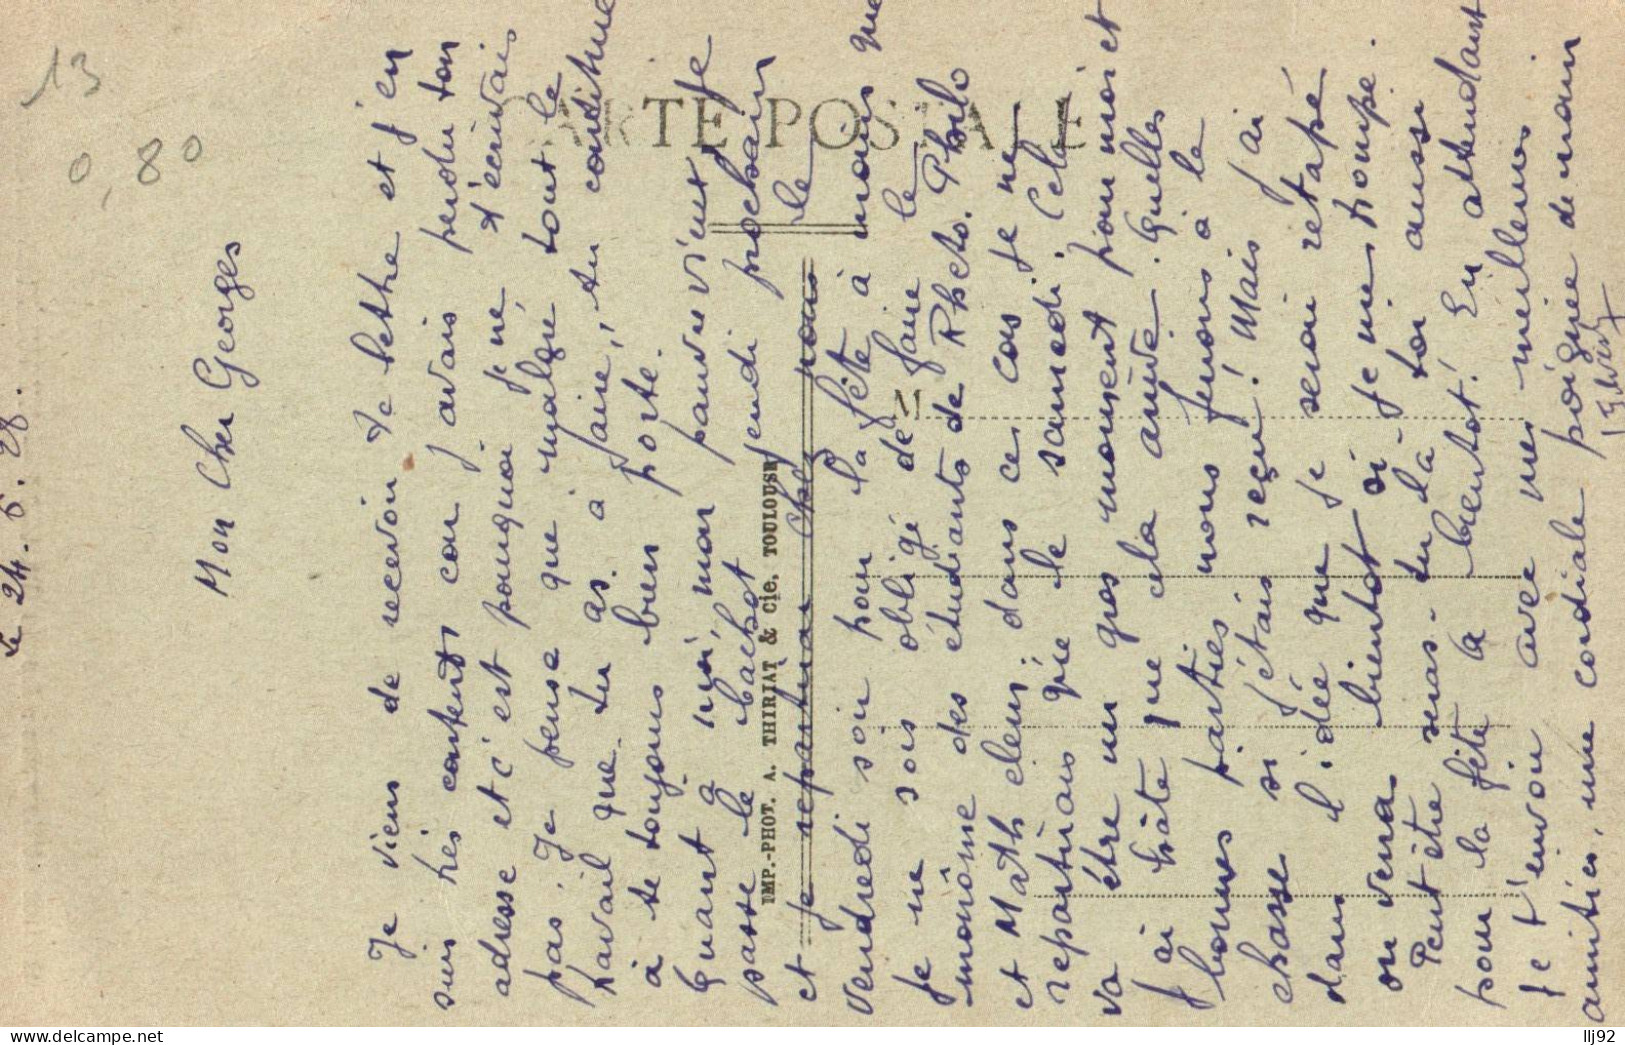 13
0,80
CARTE POSTALE
IMP.-PHOT. A. THIRIAT & Cie. TOULOUSE
Le 24. 6. 28.
Mon Cher Georges
Je viens de recevoir ta lettre et j'en
suis très content car j'avais perdu ton
adresse et c'est pourquoi je ne t'écrivais
pas. Je pense que malgré tout le
travail que tu as à faire, tu continue
à te toujours bien porte.
Quant à moi, mon pauvre vieux je
passe le bachot jeudi prochain
et je repartirai chez nous le
vendredi soir pour la fête à moins que
je ne sois obligé de faire le
monôme des étudiants de Rheto. Philo
et Math elem; dans ce cas je ne
repartirais que le samedi. Cela
va être un gros moment pour moi et
j'ai hâte que cela arrive. Quelles
bonnes parties nous ferons à la
chasse si j'étais reçu! Mais j'ai
dans l'idée que je serai retapé
on verra bientôt si je me trompe.
Peut être seras-tu là toi aussi
pour la fête à bientôt! En attendant
je t'envoie avec mes meilleures
amitiés, une cordiale poignée de main
llj92